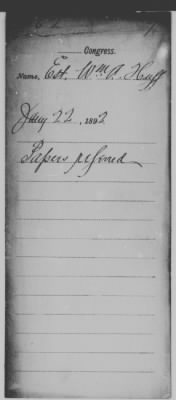 Congress.
Name, Est. Wm. A. Huff
Jany 22, 1892
Papers referred